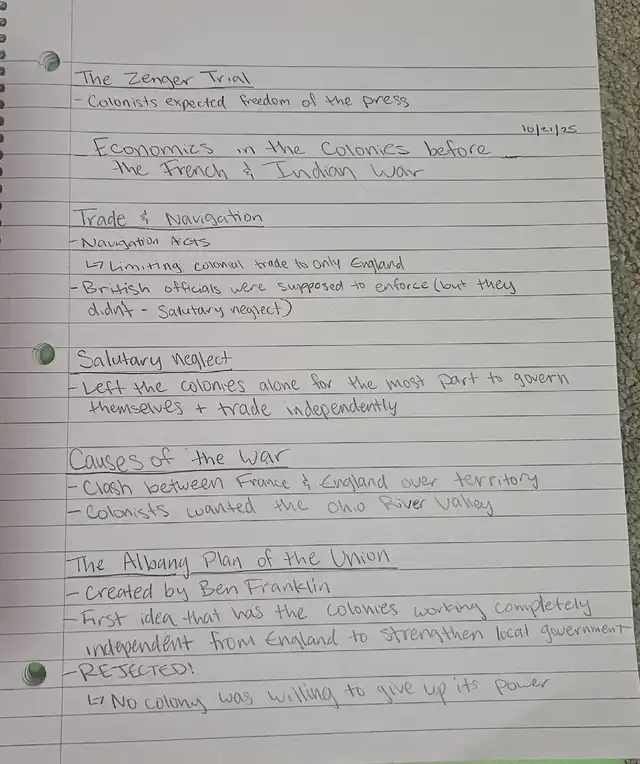 The Zenger Trial
- Colonists expected freedom of the press
10/21/25
Economics in the Colonies before
the French & Indian War
Trade & Navigation
- Navigation Acts
↳ Limiting colonial trade to only England
- British officials were supposed to enforce (but they
didn't - Salutary neglect)
Salutary neglect
- Left the colonies alone for the most part to govern
themselves + trade independently
Causes of the war
- Clash between France & England over territory
- Colonists wanted the Ohio River Valley
The Albany Plan of the Union
- Created by Ben Franklin
- First idea that has the colonies working completely
independent from England to strengthen local government
- REJECTED!
↳ No colony was willing to give up its power